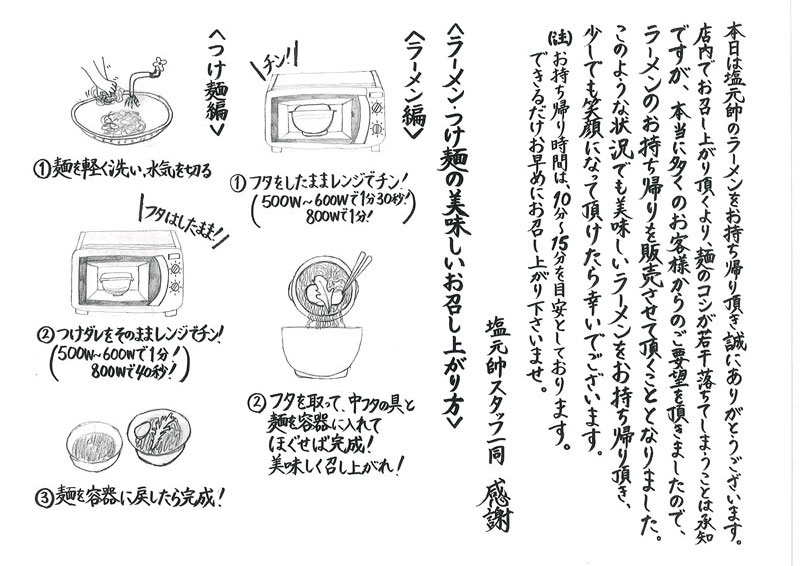 本日は塩元帥のラーメンをお持ち帰り頂き誠にありがとうございます。
店内でお召し上がり頂くより、麺のコシが若干落ちてしまうことは承知
ですが、本当に多くのお客様からのご要望を頂きましたので、
ラーメンのお持ち帰りを販売させて頂くこととなりました。
このような状況でも美味しいラーメンをお持ち帰り頂き、
少しでも笑顔になって頂けたら幸いでございます。
(注)お持ち帰り時間は、10分～15分を目安としております。
できるだけお早めにお召し上がり下さいませ。
塩元帥スタッフ一同 感謝
<ラーメン・つけ麺の美味しいお召し上がり方>
<ラーメン編>
チン!!
①フタをしたままレンジでチン!
(500W～600Wで1分30秒!
800Wで1分!)
②フタを取って、中フタの具と
麺を容器に入れて
ほぐせば完成!
美味しく召し上がれ!
<つけ麺編>
①麺を軽く洗い、水気を切る
フタはしたまま!!
②つけダレをそのままレンジでチン!
(500W～600Wで1分!
800Wで40秒!)
③麺を容器に戻したら完成!